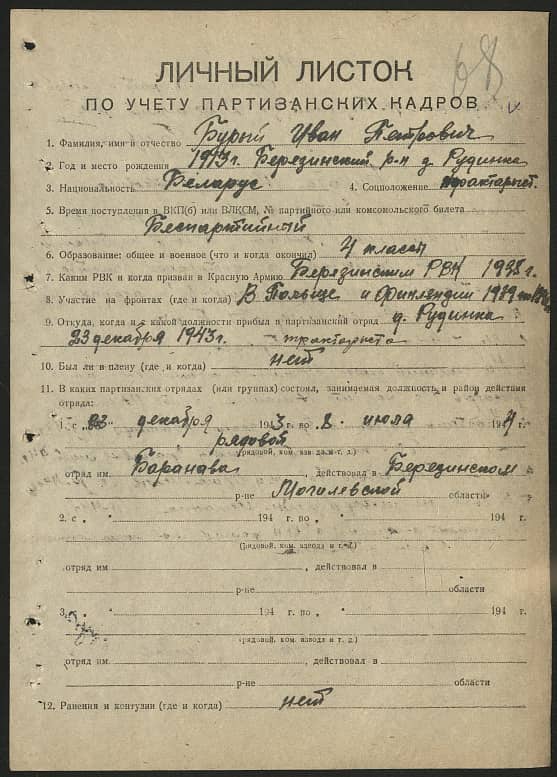 68
ЛИЧНЫЙ ЛИСТОК
ПО УЧЕТУ ПАРТИЗАНСКИХ КАДРОВ
1. Фамилия, имя и отчество Бурый Иван Петрович
2. Год и место рождения 1913 г. Березинский р-н д. Рудинка
3. Национальность Беларус 4. Соцположение
5. Время поступления в ВКП(б) или ВЛКСМ, № партийного или комсомольского билета
Беспартийный
6. Образование: общее и военное (что и когда окончил) 4 класса
7. Каким РВК и когда призван в Красную Армию Березинским РВК 1938 г.
8. Участие на фронтах (где и когда) В Польше и Финлендии 1939
9. Откуда, когда и с какой должности прибыл в партизанский отряд д. Рудинка
23 декабря 1943 г. тракториста
10. Был ли в плену (где и когда) нет
11. В каких партизанских отрядах (или группах) состоял, занимаемая должность и район действия
отряда:
1. с „23 декабря 1943 г. по 8 июля 1944
рядовой
(рядовой, ком. взвода и т. д.)
отряд им Баранава, действовал в Березинском
р-не Могилевской области
2. с „ “ 194 г. по „ “ 194 г.
(рядовой, ком. взвода и т. д.)
отряд им , действовал в
р-не области
3. с „ “ 194 г. по „ “ 194 г.
(рядовой, ком. взвода и т. д.)
отряд им. , действовал в
р-не области
12. Ранения и контузии (где и когда) нет